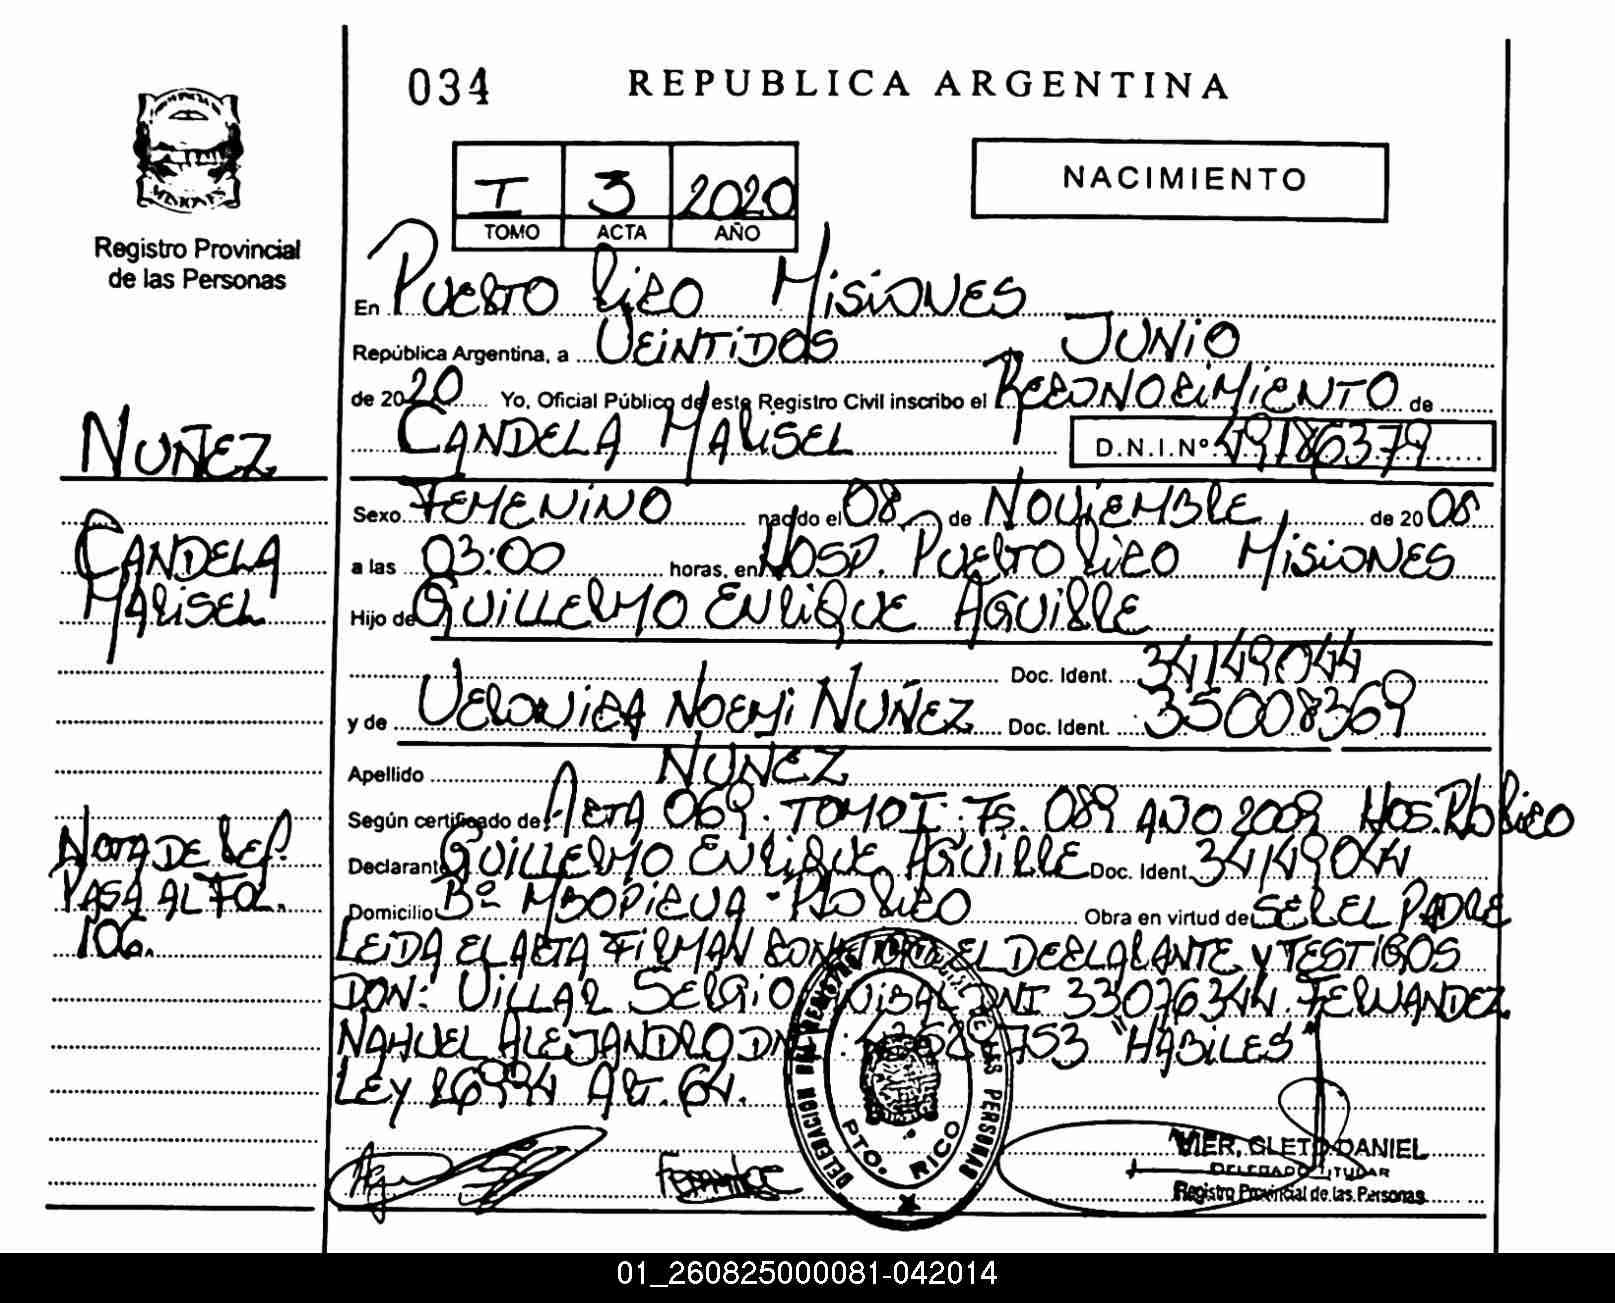 034 REPUBLICA ARGENTINA
I 3 2020
TOMO ACTA AÑO
NACIMIENTO
Registro Provincial
de las Personas
En PUERTO RICO MISIONES
República Argentina, a VEINTIDOS JUNIO
de 2020 Yo, Oficial Público de este Registro Civil inscribo el RECONOCIMIENTO de
CANDELA MARISEL D.N.I.Nº 49186379
NUÑEZ
CANDELA
MARISEL
Sexo FEMENINO nacido el 08 de NOVIEMBRE de 2008
a las 03:00 horas, en HOSP. PUERTO RICO MISIONES
Hijo de GUILLERMO ENRIQUE AGUIRRE
Doc. Ident. 34149044
y de VERONICA NOEMI NUÑEZ Doc. Ident. 35008369
Apellido NUÑEZ
Según certificado de ACTA 069. TOMO I. Fs. 089 AÑO 2009 HOS. Pto RICO
Declarante GUILLERMO ENRIQUE AGUIRRE Doc. Ident. 34149044
Domicilio Bº MBOPICUA - Pto RICO Obra en virtud de SER EL PADRE
LEIDA EL ACTA FIRMAN CONMIGO EL DECLARANTE Y TESTIGOS
DON: VILLAR SERGIO DNI 33076344. FERNANDEZ
NAHUEL ALEJANDRO 753 "HABILES"
LEY 26994 ART. 64.
NOTA DE REF.
PASA AL FOL.
106.
DELEGACION DEL REGISTRO PROVINCIAL DE LAS PERSONAS
PTO. RICO
VIER, CLETO DANIEL
DELEGADO TITULAR
Registro Provincial de las Personas
01_260825000081-042014